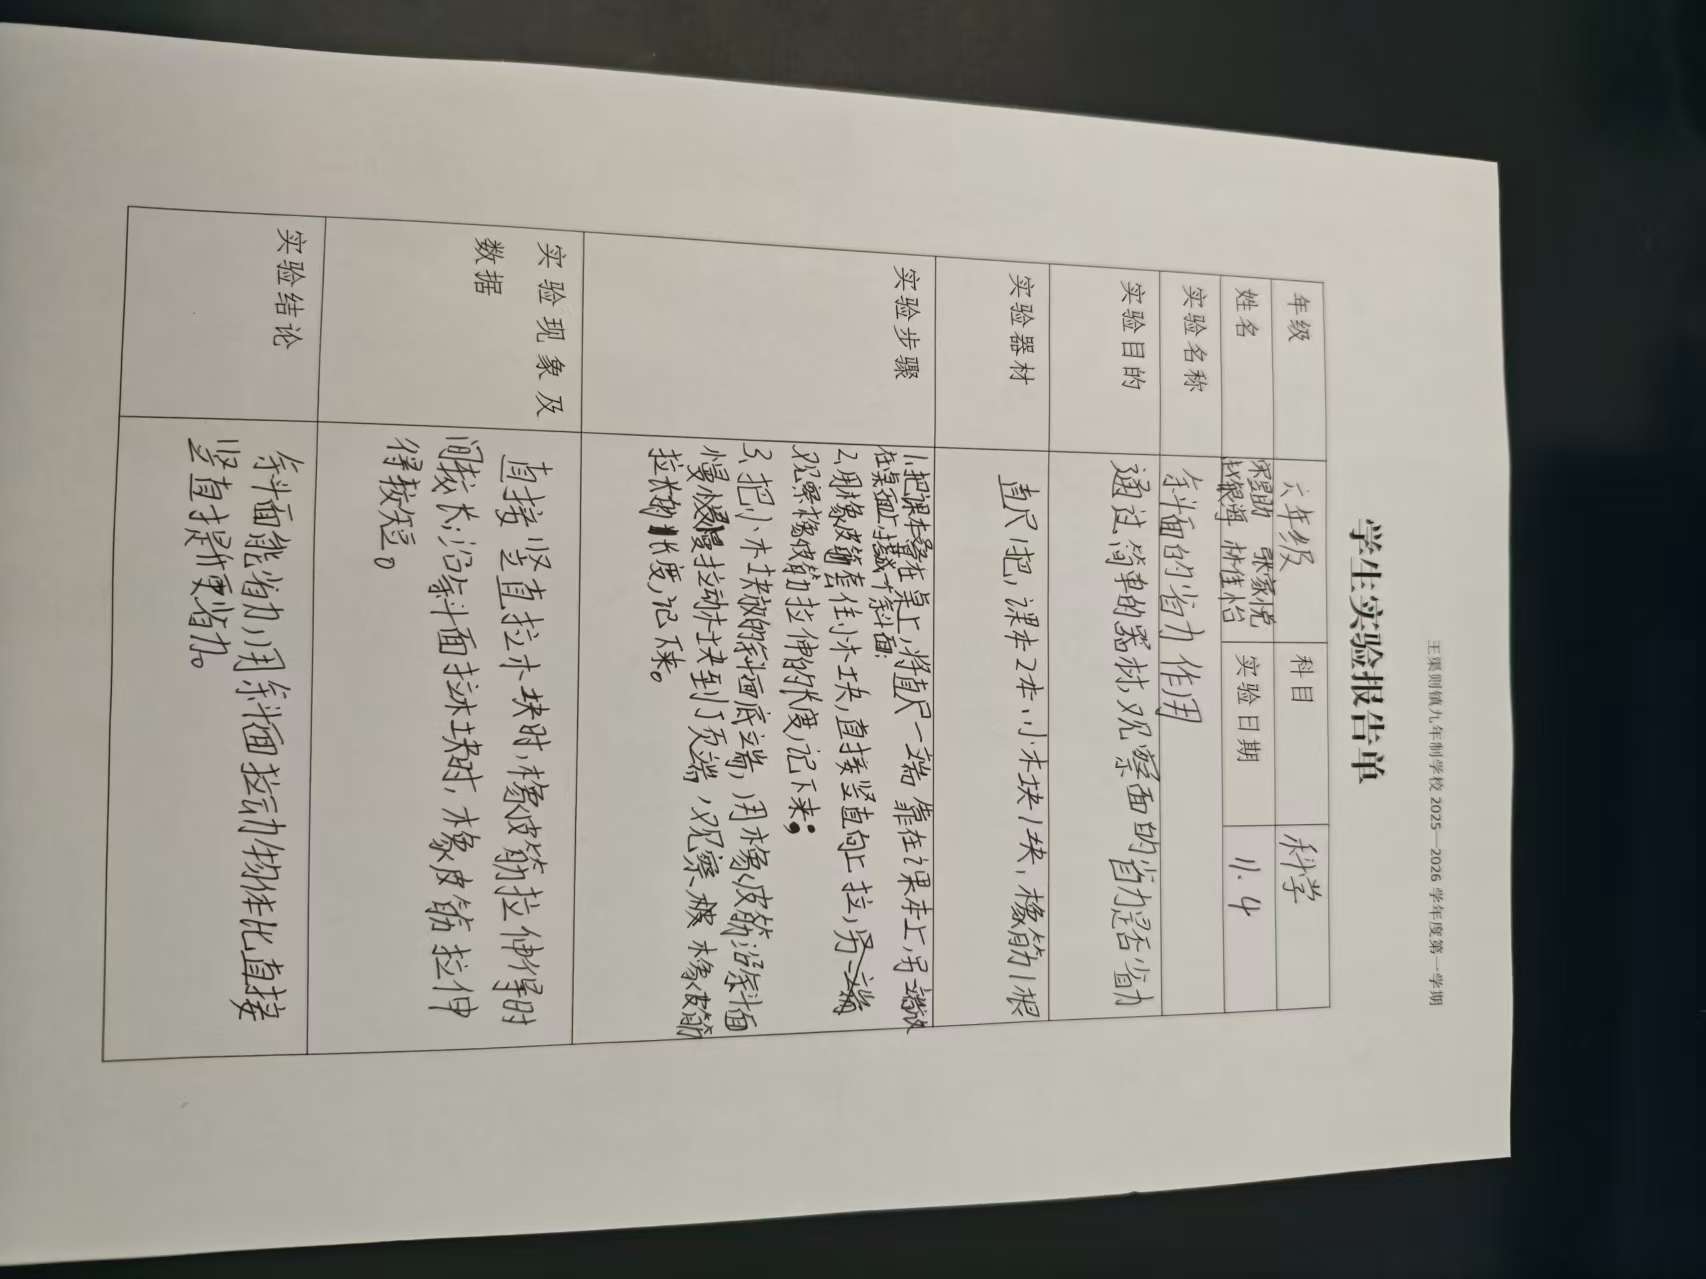 王渠则镇九年制学校 2025—2026 学年度第一学期
学生实验报告单
年级 六年级 科目 科学
姓名 张家悦
林佳怡 实验日期 11.4
实验名称 斜面的省力作用
实验目的 通过简单的器材,观察面的省力是否省力
实验器材 直尺1把,课本2本,小木块1块,橡筋1根
实验步骤
1.把课本叠在桌上,将直尺一端靠在课本上,另一端放
在桌面上,搭成一个斜面;
2.用橡皮筋套住小木块,直接竖直向上拉,另一端
观察橡皮筋拉伸的长度,记下来;
3.把小木块放的斜面底端,用橡皮筋沿斜面
慢慢拉动木块到顶端,观察被橡皮筋
拉长的长度,记下来。
实验现象及
数据
直接竖直拉木块时,橡皮筋拉伸得时
间较长;沿斜面拉木块时,橡皮筋拉伸
得较短。
实验结论
斜面能省力,用斜面拉动物体比直接
竖直提作更省力。